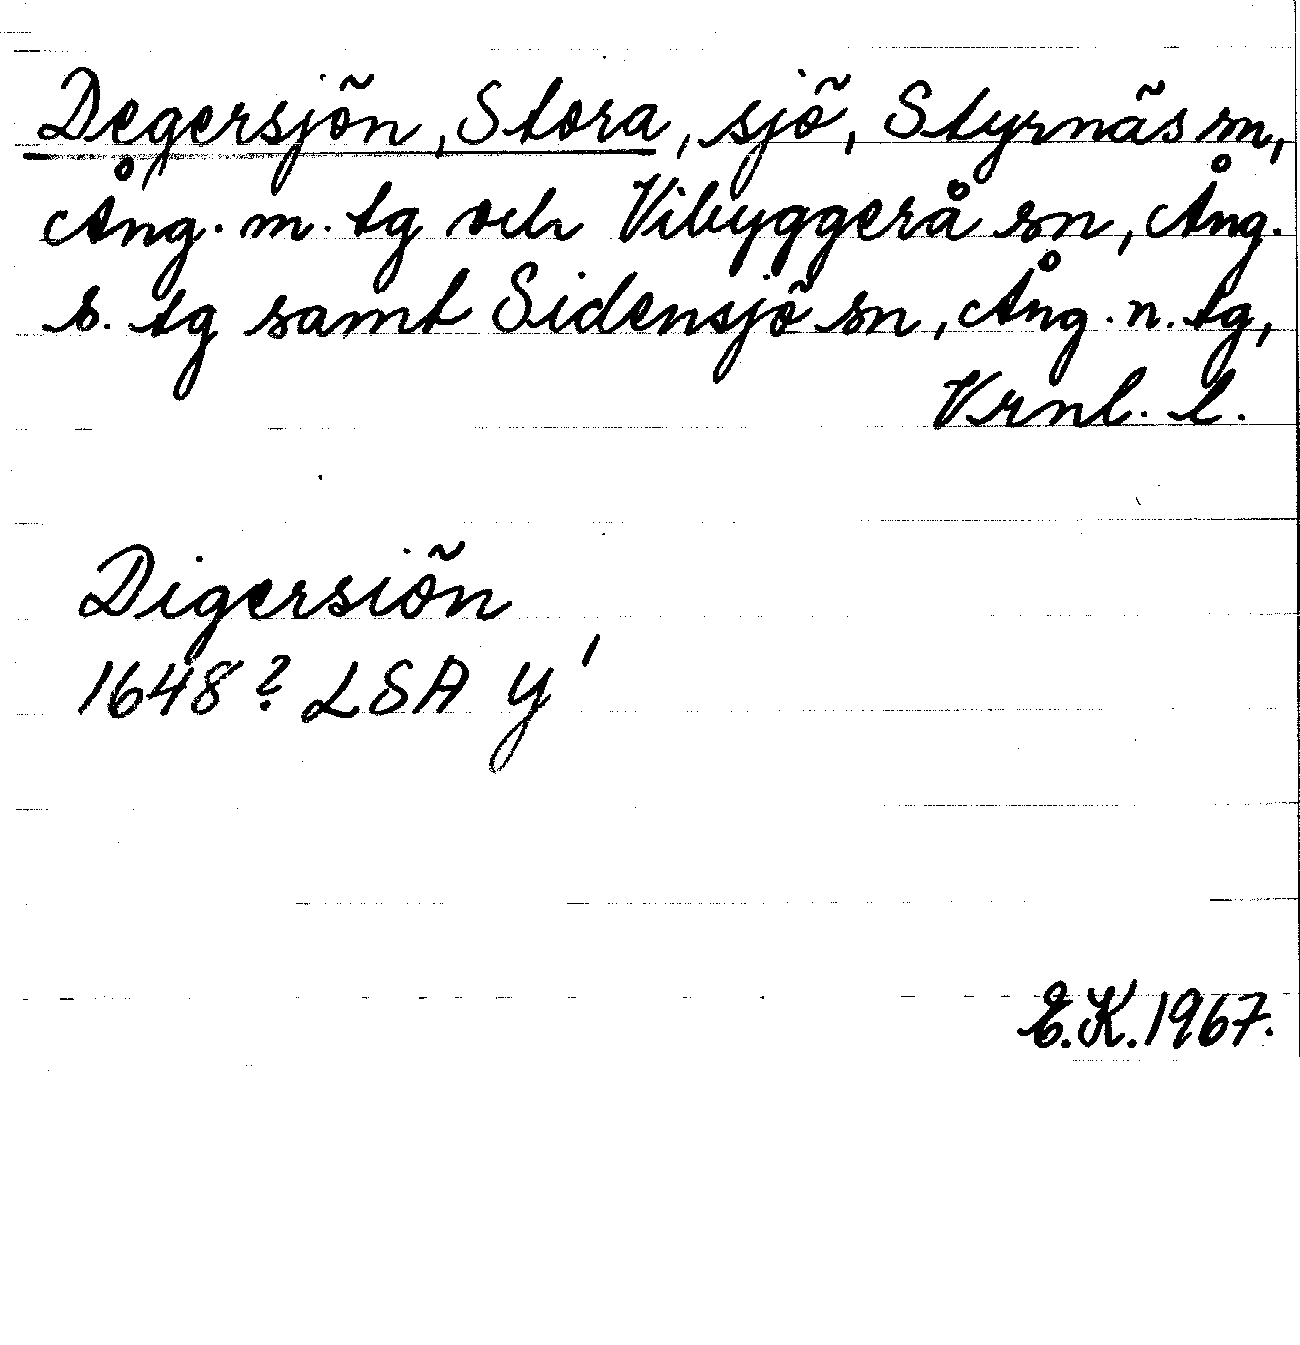 Degersjön, Stora, sjö, Styrnäs sn,
Ång. m. tg och Vibyggerå sn, Ång.
s. tg samt Sidensjö sn, Ång. n. tg,
Vrnl. l.
Digersiön
1648? LSA Y 1
E.K. 1967.